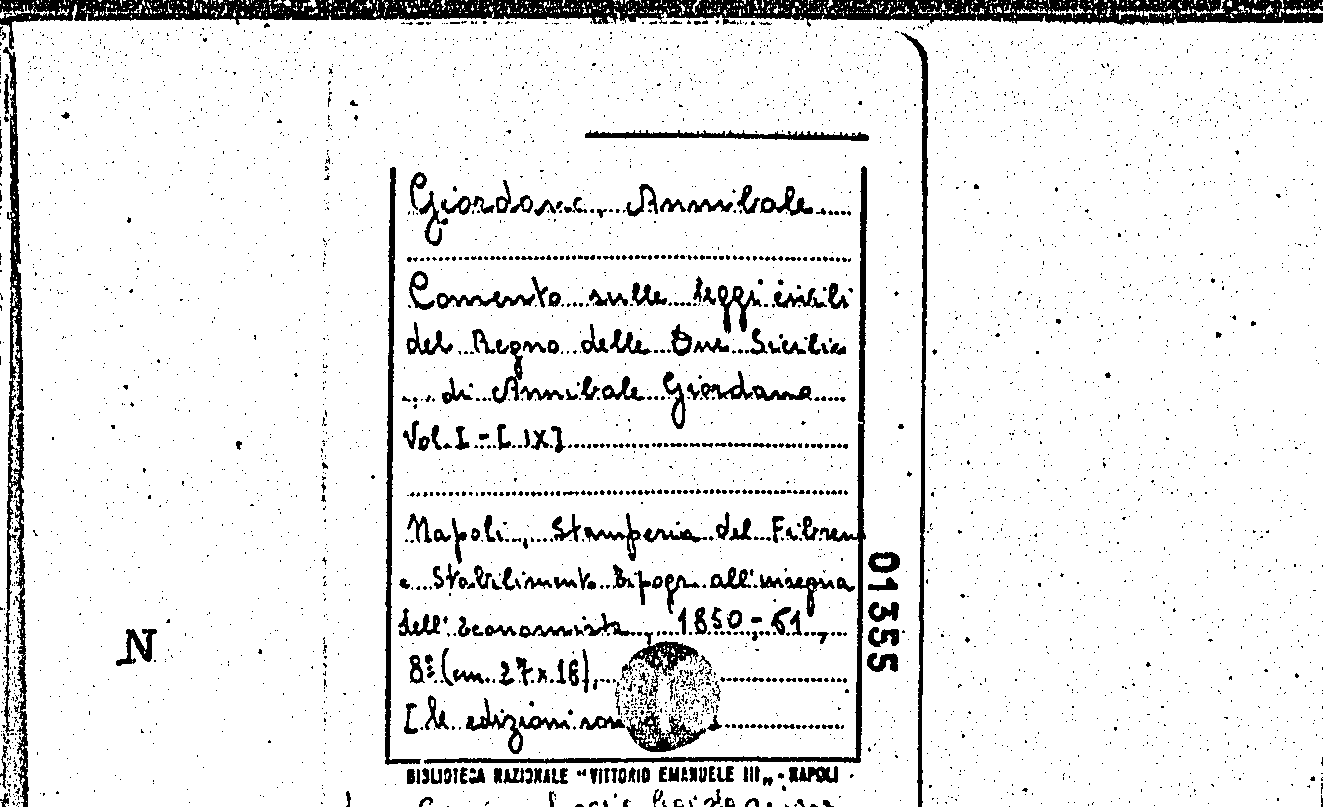 Giordano, Annibale
Comento sulle leggi civili
del Regno delle Due Sicilie
... di Annibale Giordano
Vol. I - [IX]
Napoli, Stamperia del Fibreno
e Stabilimento Tipogr. all'insegna
dell'Economista, 1850-61,
8° (cm. 27x18),
[le edizioni sono
01355
N
BIBLIOTECA NAZIONALE "VITTORIO EMANUELE III„ - NAPOLI